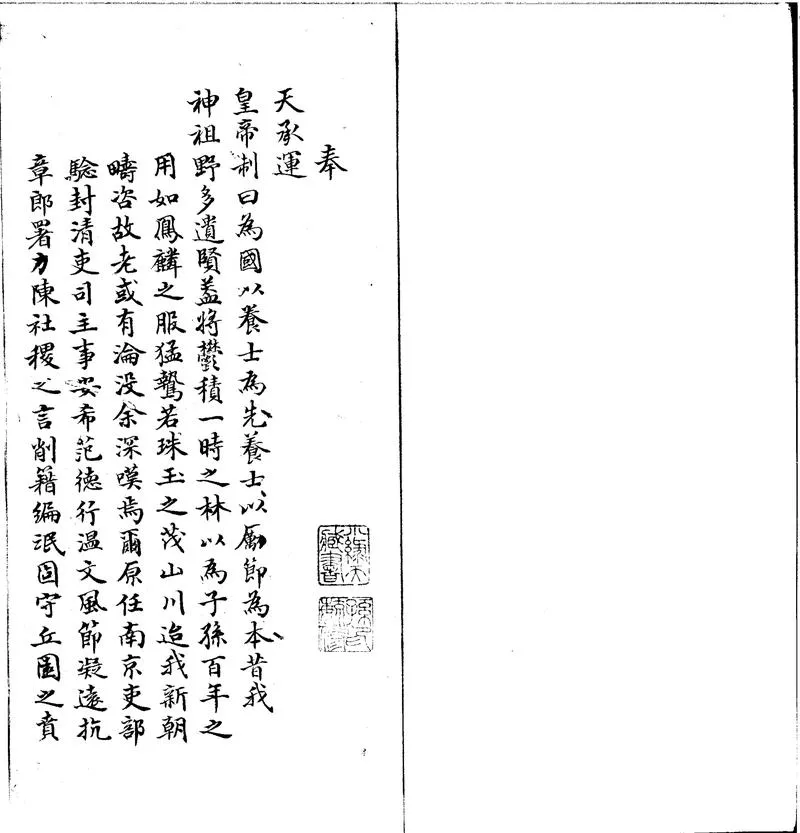 奉
天承運
皇帝制曰為國以養士為先養士以厲節為本昔我
神祖野多遺賢蓋將鬱積一時之林以為子孫百年之
用如鳳麟之服猛鷙若珠玉之茂山川迨我新朝
疇咨故老或有淪没余深嘆焉爾原任南京吏部
驗封清吏司主事安希范德行温文風節凝遠抗
章郎署力陳社稷之言削籍編氓固守丘園之賁
藏書